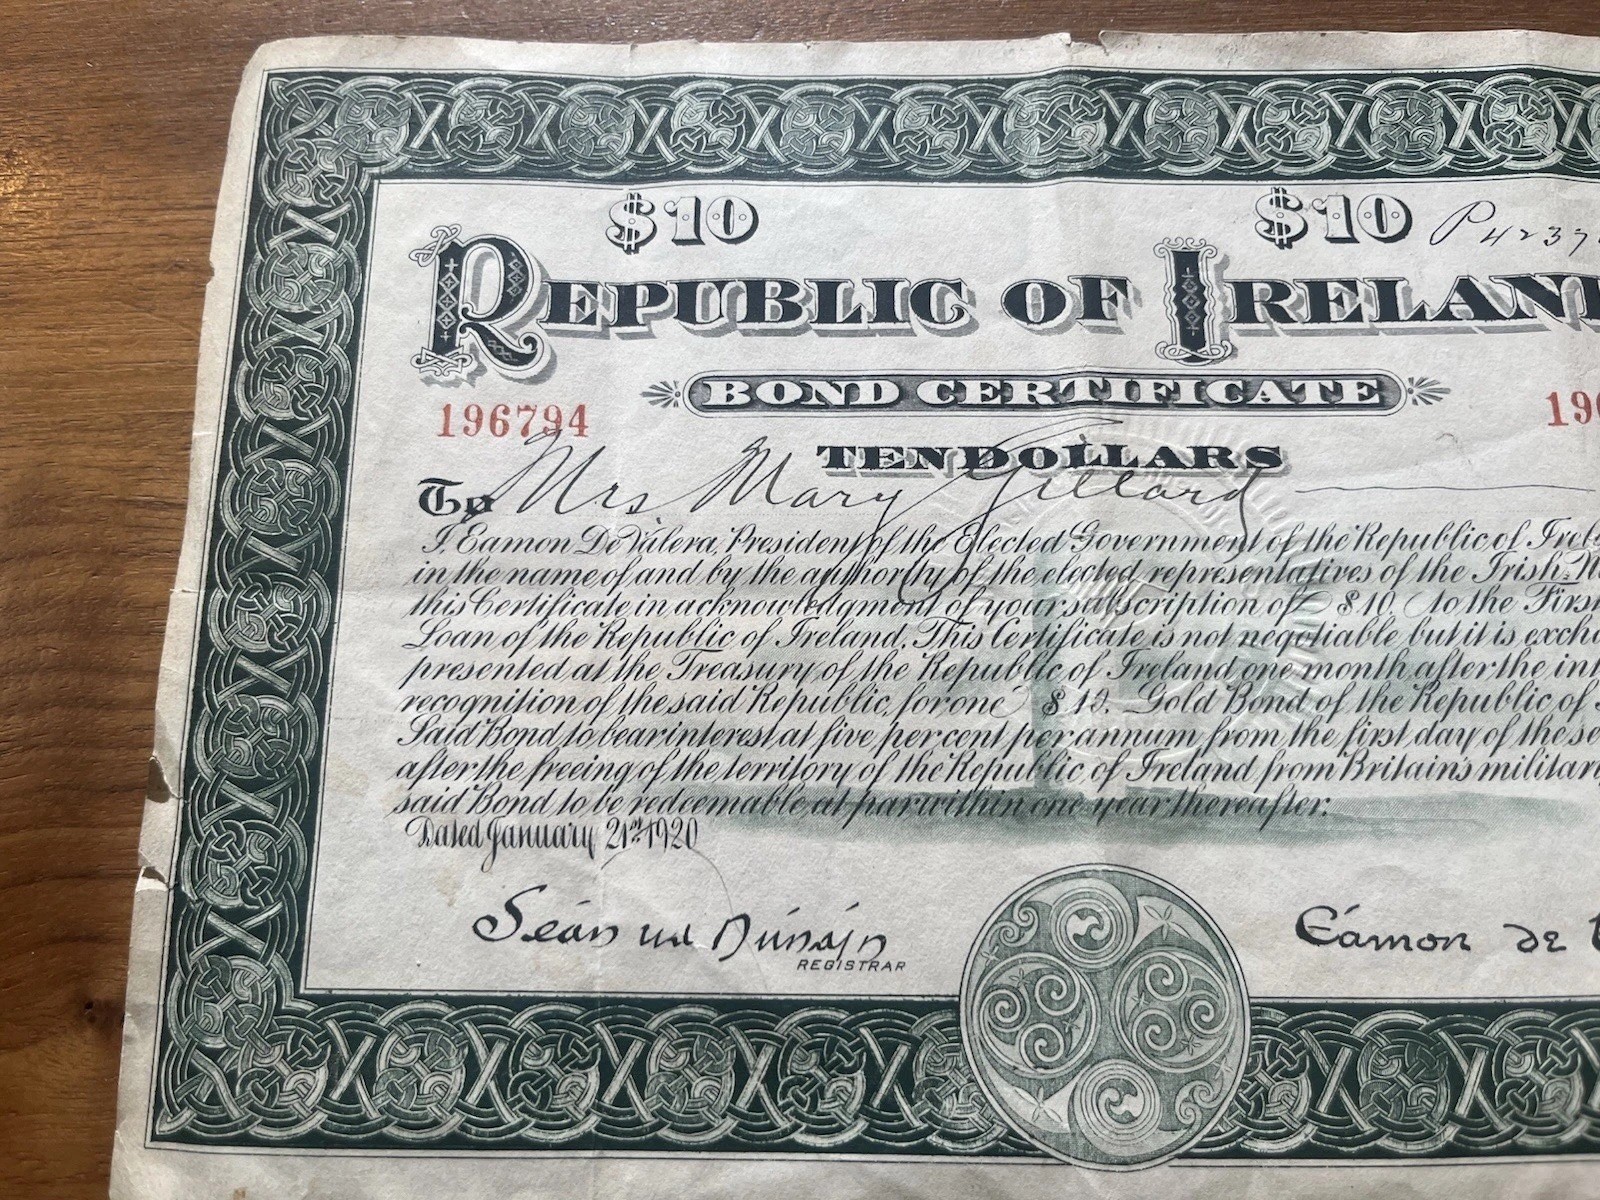 $10 $10 P4237
REPUBLIC OF IRELAN
BOND CERTIFICATE
196794 19
TEN DOLLARS
To Mrs Mary Gillard
I, Eamon De Valera, President of the Elected Government of the Republic of Irel
in the name of and by the authority of the elected representatives of the Irish N
this Certificate in acknowledgment of your subscription of $10. to the First
Loan of the Republic of Ireland. This Certificate is not negotiable but it is exch
presented at the Treasury of the Republic of Ireland one month after the int
recognition of the said Republic, for one $10. Gold Bond of the Republic of
Said Bond to bear interest at five per cent per annum from the first day of the se
after the freeing of the territory of the Republic of Ireland from Britain's militar
said Bond to be redeemable at par within one year thereafter.
Dated January 21st 1920
Éamon de
REGISTRAR